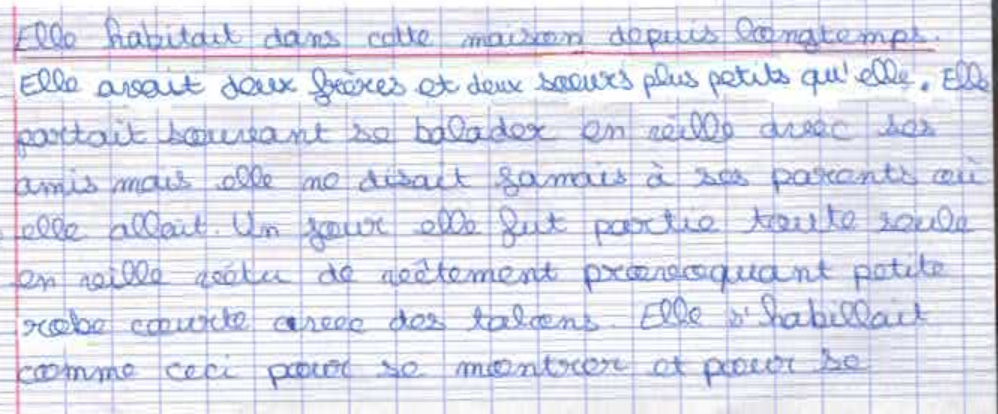 Elle habitait dans cette maison depuis longtemps.
Elle avait deux frères et deux soeurs plus petits qu'elle. Elle
partait souvant se balader en ville avec ses
amis mais elle ne disait jamais à ses parents où
elle allait. Un jour elle fut partie toute seule
en ville vêtu de vêtement provocquant petite
robe courte avec des talons. Elle s'habillait
comme ceci pour se montrer et pour se